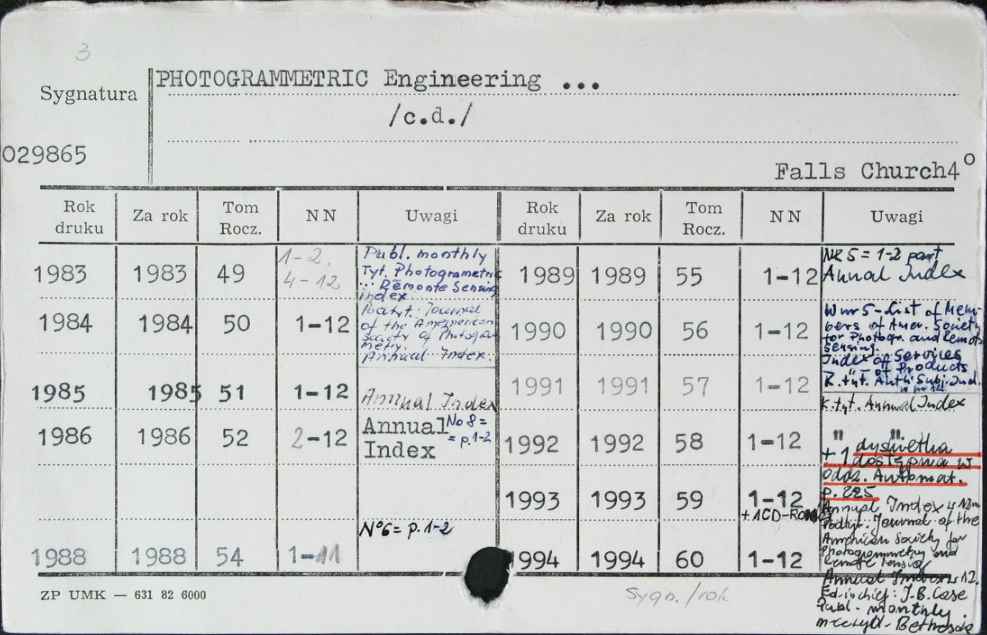 3
PHOTOGRAMMETRIC Engineering ...
Sygnatura
/c.d./
029865
Falls Church4°
Rok druku Za rok Tom Rocz. NN Uwagi Rok druku Za rok Tom Rocz. NN Uwagi
1983 1983 49 1-2, 4-12
Publ. monthly
Tyt. Photogrametric
Remonte Sensing
index
1984 1984 50 1-12
Podtyt: Journal
of the
Society of Photogra
metry.
Annual Index.
1985 1985 51 1-12 Annual Index
1986 1986 52 2-12 Annual Index
No 8 =
= p.1-2
N°6 = p.1-2
1988 1988 54 1-11
1989 1989 55 1-12
NR 5 = 1-2 part
Annal Index
1990 1990 56 1-12
W nr 5-List of Mem-
bers of Amer. Society
for Photogr. and Remote
Sensing.
Index of Services
" Products
K. tyt. Auth. Subj. Ind.
1991 1991 57 1-12
K.tyt. Annual Index
1992 1992 58 1-12
" "
+ 1 dyskietka
dostępna w
Odda. Automat.
p. 225
1993 1993 59 1-12
+1CD-ROM
Annual Index
Podtyt: Journal of the
American Society for
Photogrammetry and
remote sensing
1994 1994 60 1-12
Annual Index 12.
Ed. in chief: J.B. Case
Publ. monthly
ZP UMK — 631 82 6000
Sygn./rok